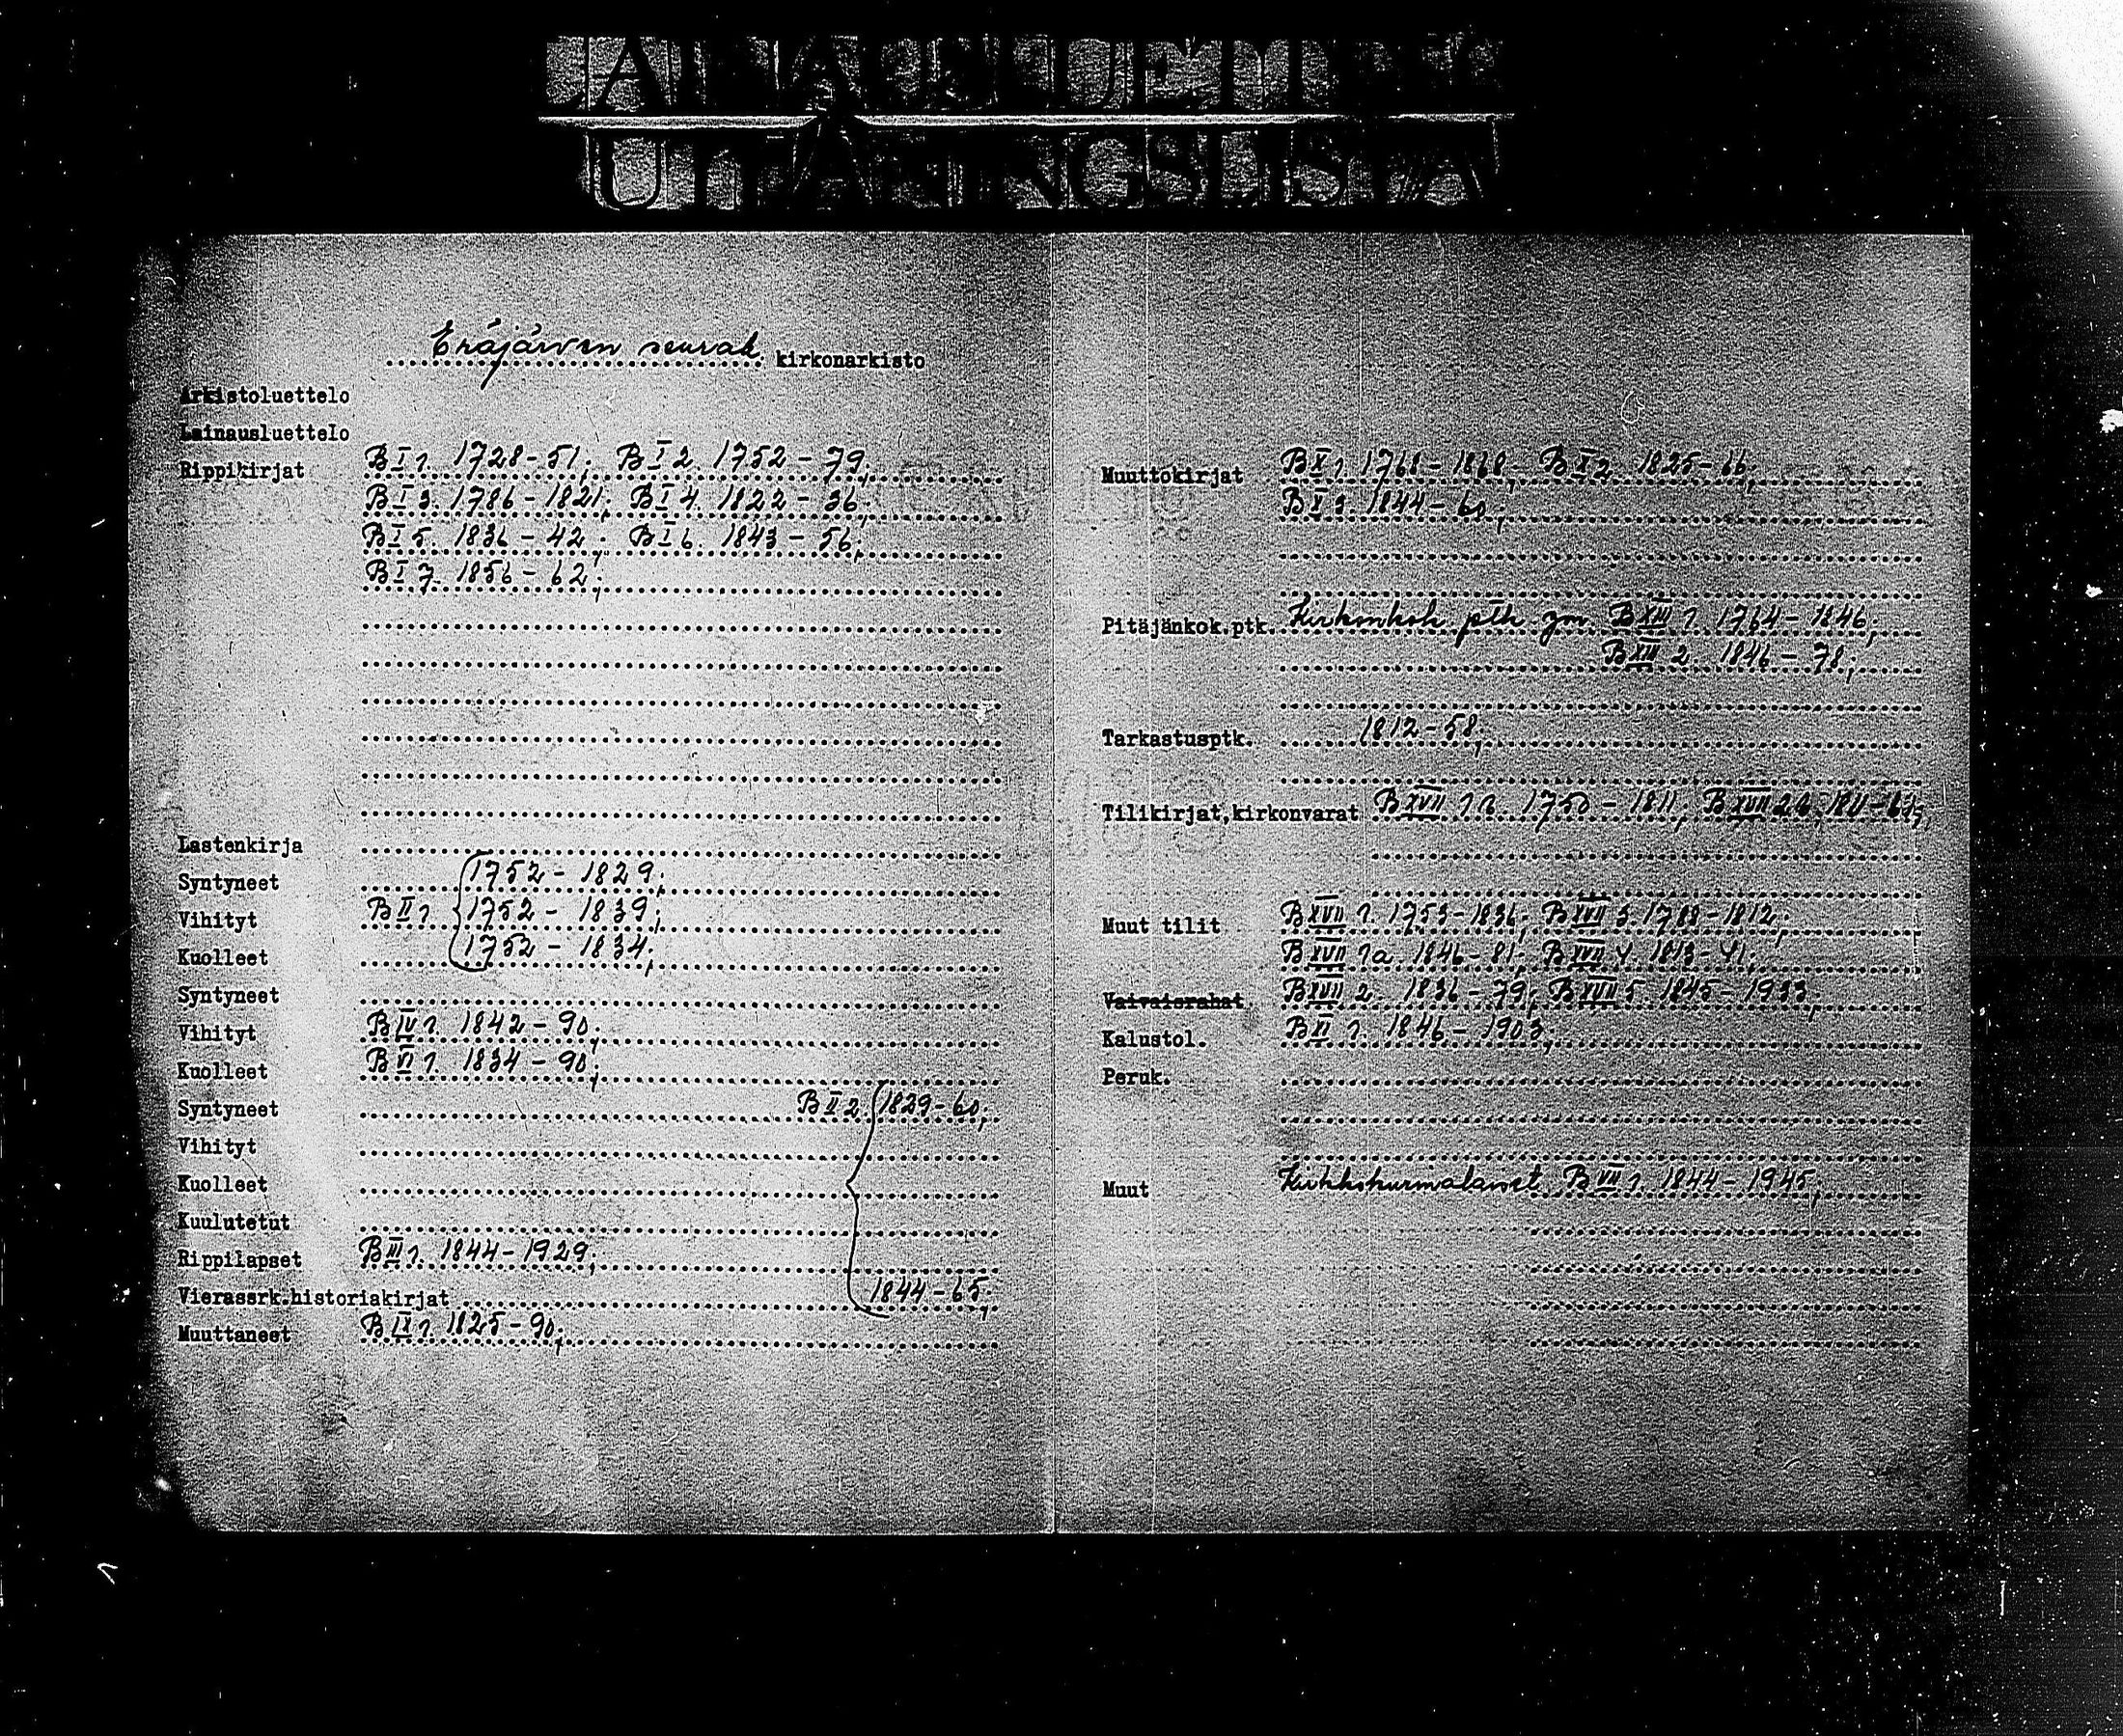 LAINAUSLUETTELO
UTLÅNINGSLISTA
Eräjärven seurak. kirkonarkisto
Arkistoluettelo
Lainausluettelo
Rippikirjat B I 1. 1728-51; B I 2 1752-79;
B I 3. 1786-1821; B I 4. 1822-36;
B I 5. 1836-42; B I 6. 1843-56;
B I 7. 1856-62;
Lastenkirja
Syntyneet 1752-1829;
Vihityt B II 1. 1752-1839;
Kuolleet 1752-1834;
Syntyneet
Vihityt B IV 1. 1842-90;
Kuolleet B VI 1. 1834-90;
Syntyneet B II 2. 1829-60;
Vihityt
Kuolleet
Kuulutetut
Rippilapset B III 1. 1844-1929;
Vierassrk.historiakirjat 1844-65;
Muuttaneet B IX 1. 1825-90;
Muuttokirjat B X 1. 1768-1868; B X 2. 1825-66;
B X 3. 1844-60;
Pitäjänkok.ptk. Kirkonkok. ptk ym. B XIII 1. 1764-1846;
B XIII 2. 1846-78;
Tarkastusptk. 1812-58;
Tilikirjat,kirkonvarat B XVII 1a. 1750-1811; B XVII 2a. 1811-64;
Muut tilit B XVII 1. 1753-1836; B XVII 3. 1788-1812;
B XVII 1a 1846-81; B XVII 4. 1813-41;
Vaivaisrahat B XVII 2. 1836-79; B XVII 5. 1845-1933;
Kalustol. B XI 1. 1846-1903;
Peruk.
Muut Kirkkokurinalaiset B VII 1. 1844-1945;